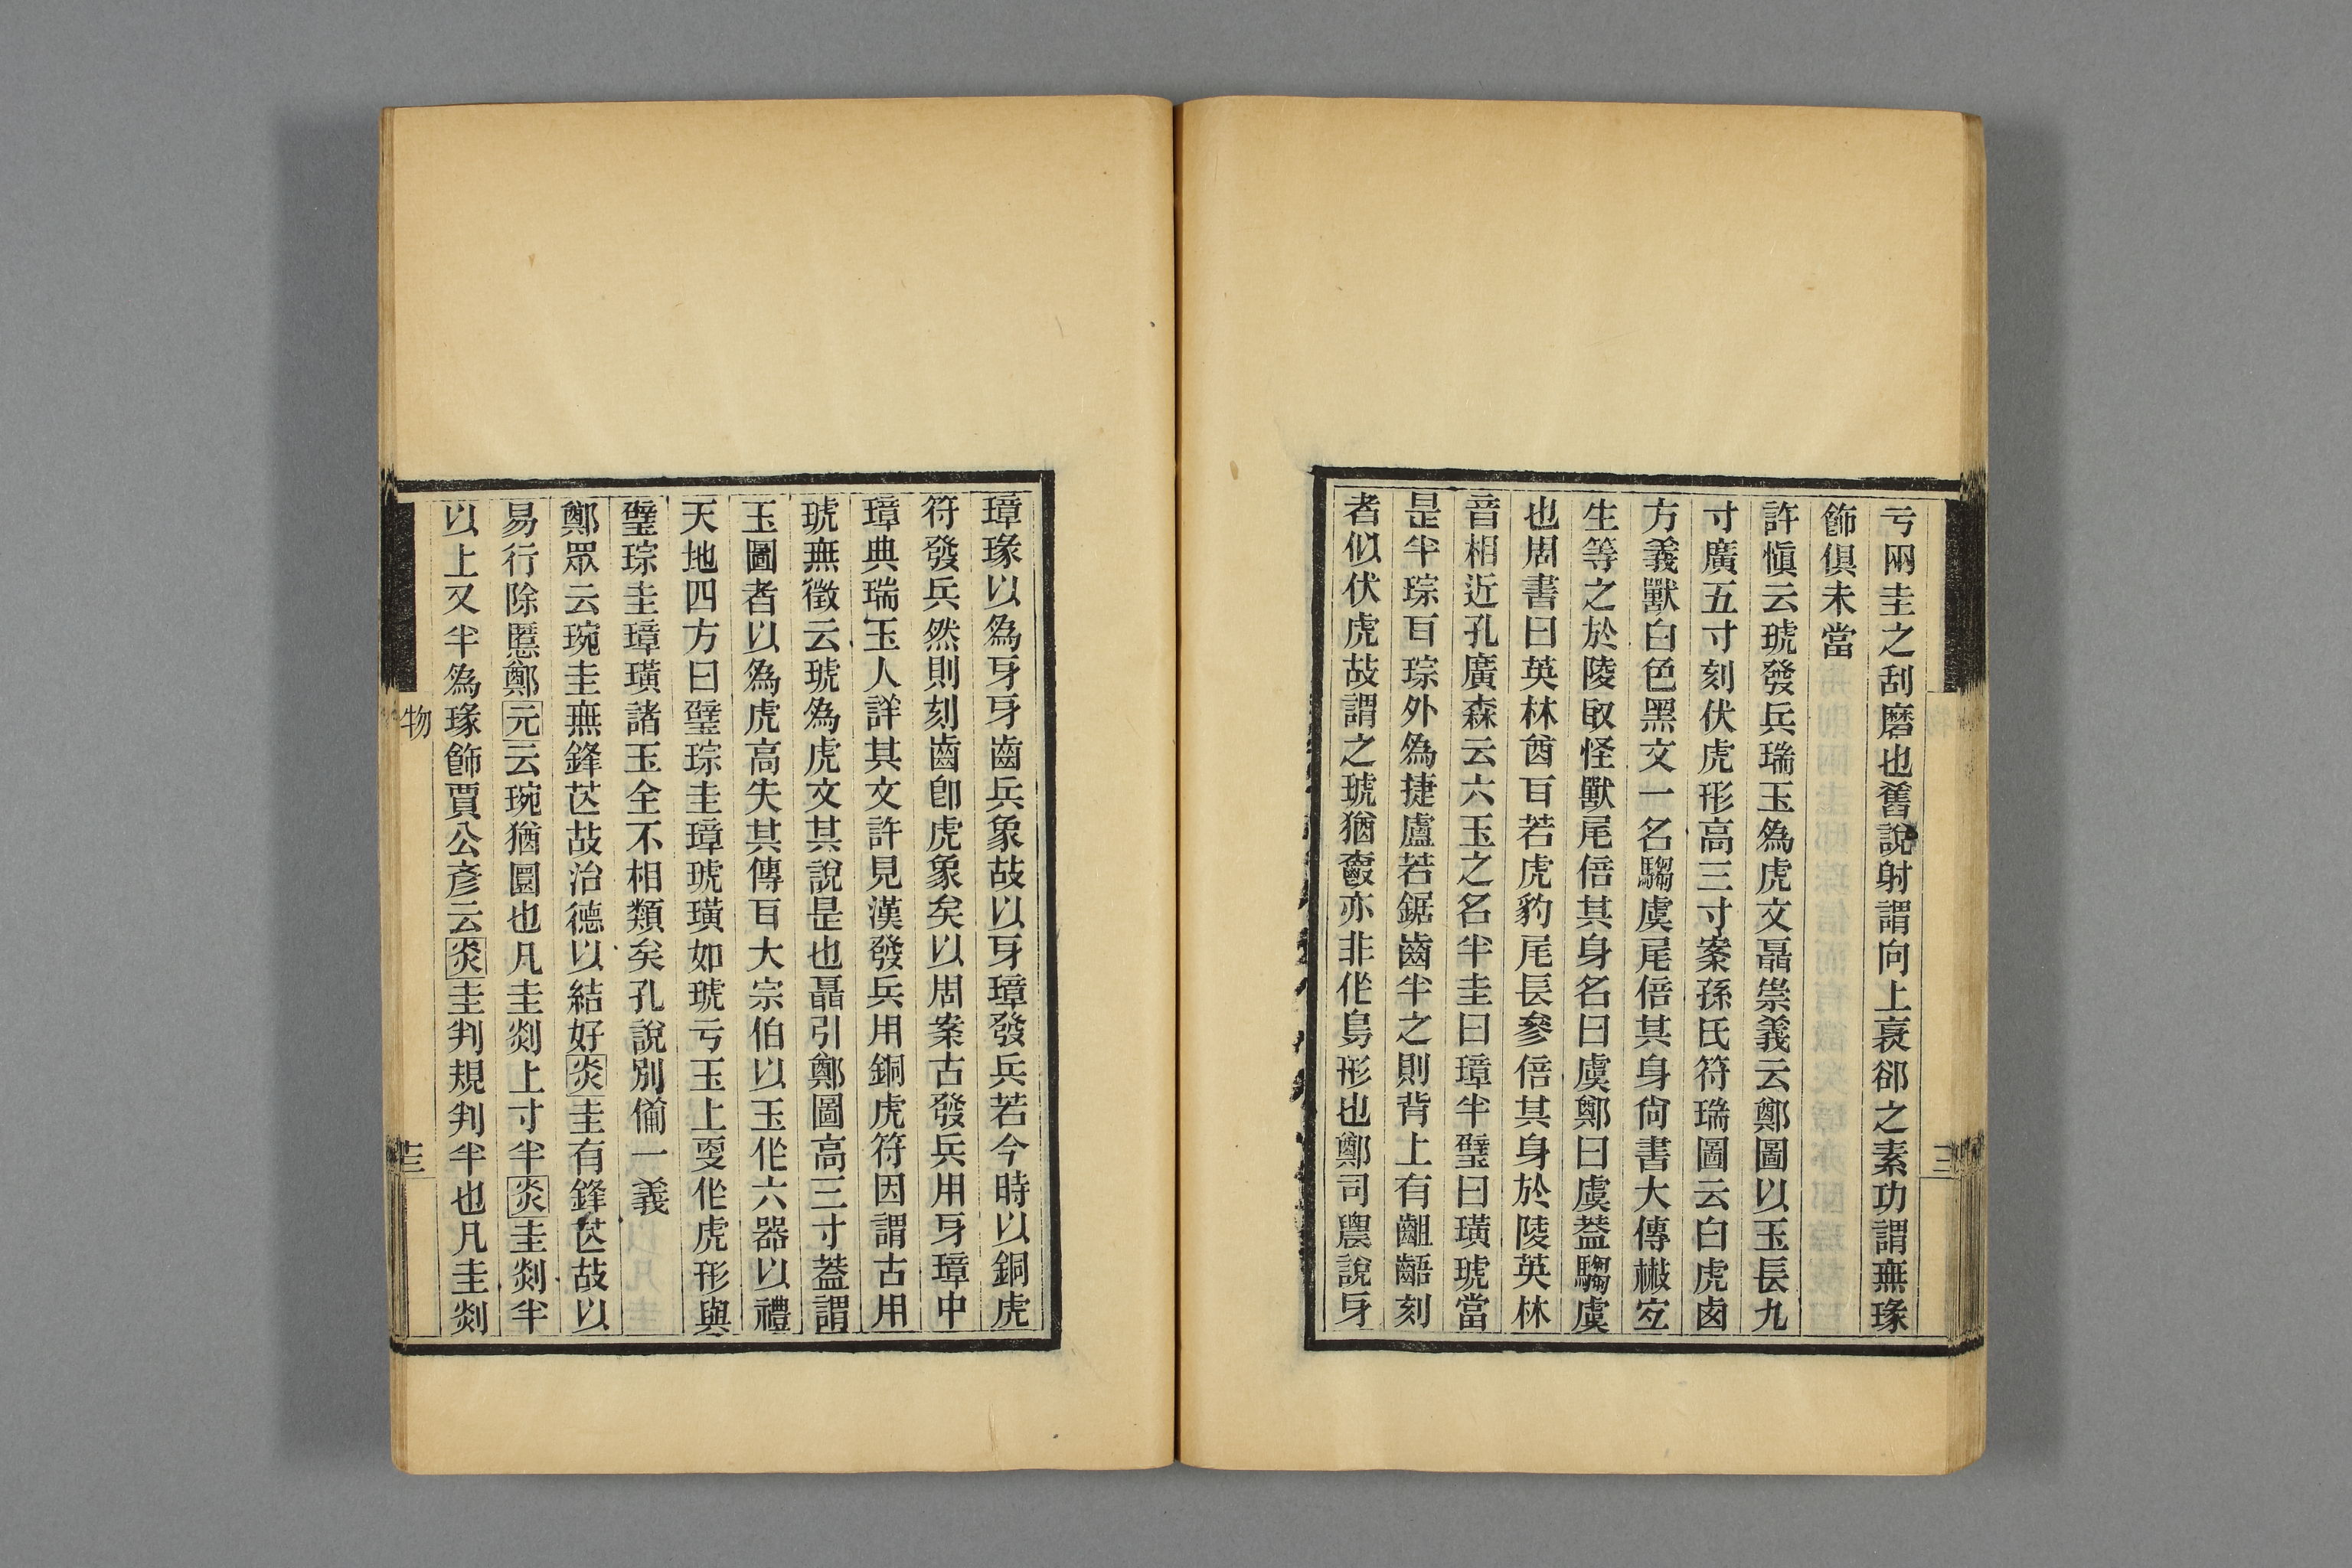 亏兩圭之刮磨也舊說射謂向上衺郤之素功謂無瑑
飾俱未當
許愼云琥發兵瑞玉爲虎文聶崇義云鄭圖以玉長九
寸廣五寸刻伏虎形高三寸案孫氏符瑞圖云白虎鹵
方義獸白色黑文一名騶虞尾倍其身尙書大傳㪚宐
生等之於陵取怪獸尾倍其身名曰虞鄭曰虞蓋騶虞
也周書曰英林酋百若虎豹尾長參倍其身於陵英林
音相近孔廣森云六玉之名半圭曰璋半璧曰璜琥當
是半琮百琮外爲捷盧若鋸齒半之則背上有齟齬刻
者佀伏虎故謂之琥猶敔亦非作鳥形也鄭司農說牙
璋瑑以爲牙牙齒兵象故以牙璋發兵若今時以銅虎
符發兵然則刻齒卽虎象矣以周案古發兵用牙璋中
璋典瑞玉人詳其文許見漢發兵用銅虎符因謂古用
琥無徵云琥爲虎文其說是也聶引鄭圖高三寸蓋謂
玉圖者以爲虎高失其傳百大宗伯以玉作六器以禮
天地四方曰璧琮圭璋琥璜如琥亏玉上耎作虎形與
璧琮圭璋璜諸玉全不相類矣孔說別僃一義
鄭眾云琬圭無鋒芒故治德以結好炎圭有鋒芒故以
易行除慝鄭元云琬猶圜也凡圭剡上寸半炎圭剡半
以上又半爲瑑飾賈公彥云炎圭判規判半也凡圭剡
物
三